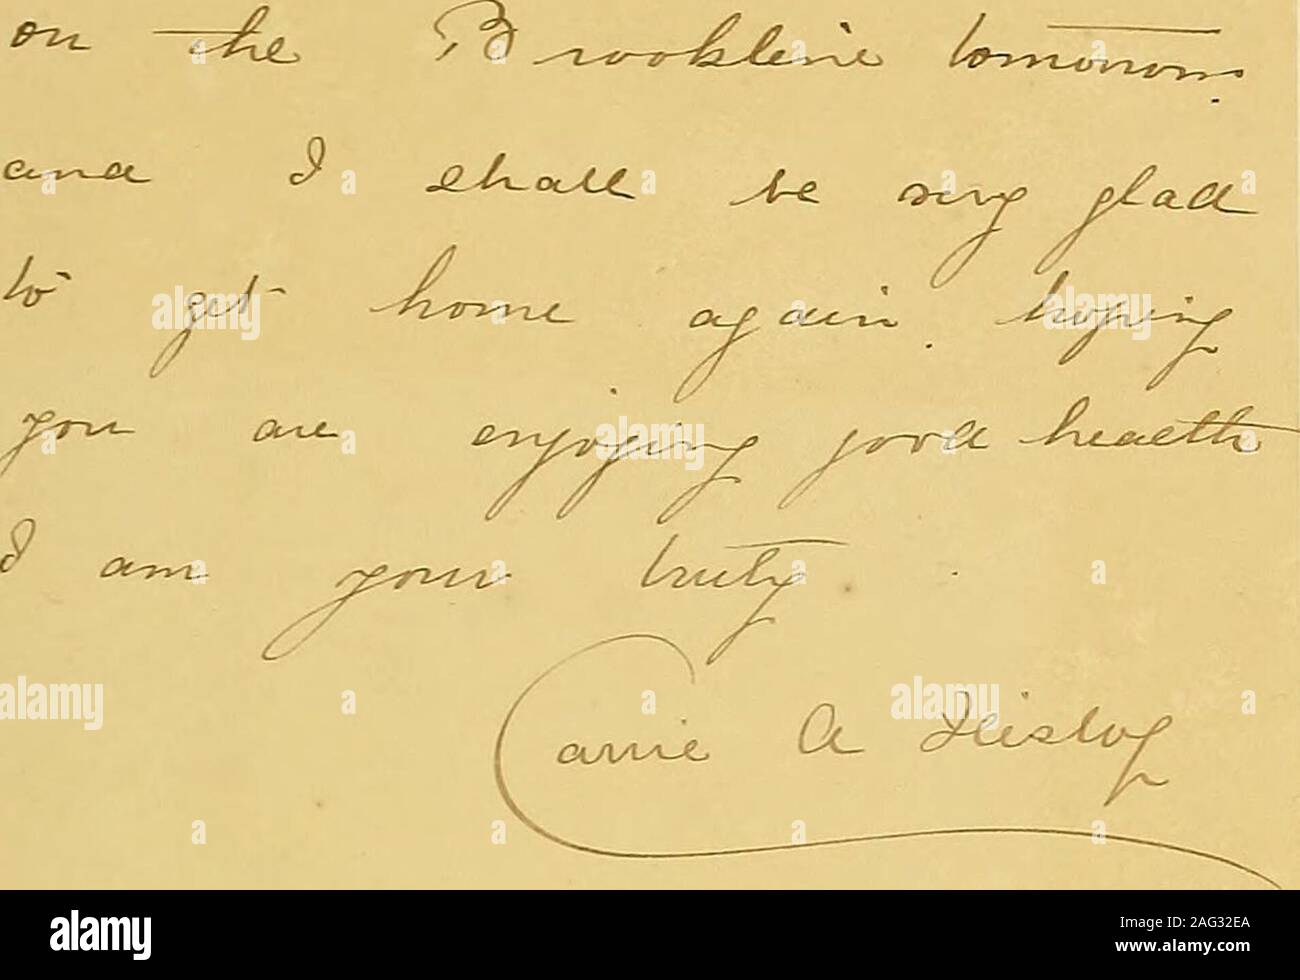 on the Brookline tomorrow.
and I shall be very glad
to get home again. hoping
you are enjoying good health
I am your truly.
Carrie A
alamy
Image ID: 2AG32EA
www.alamy.com